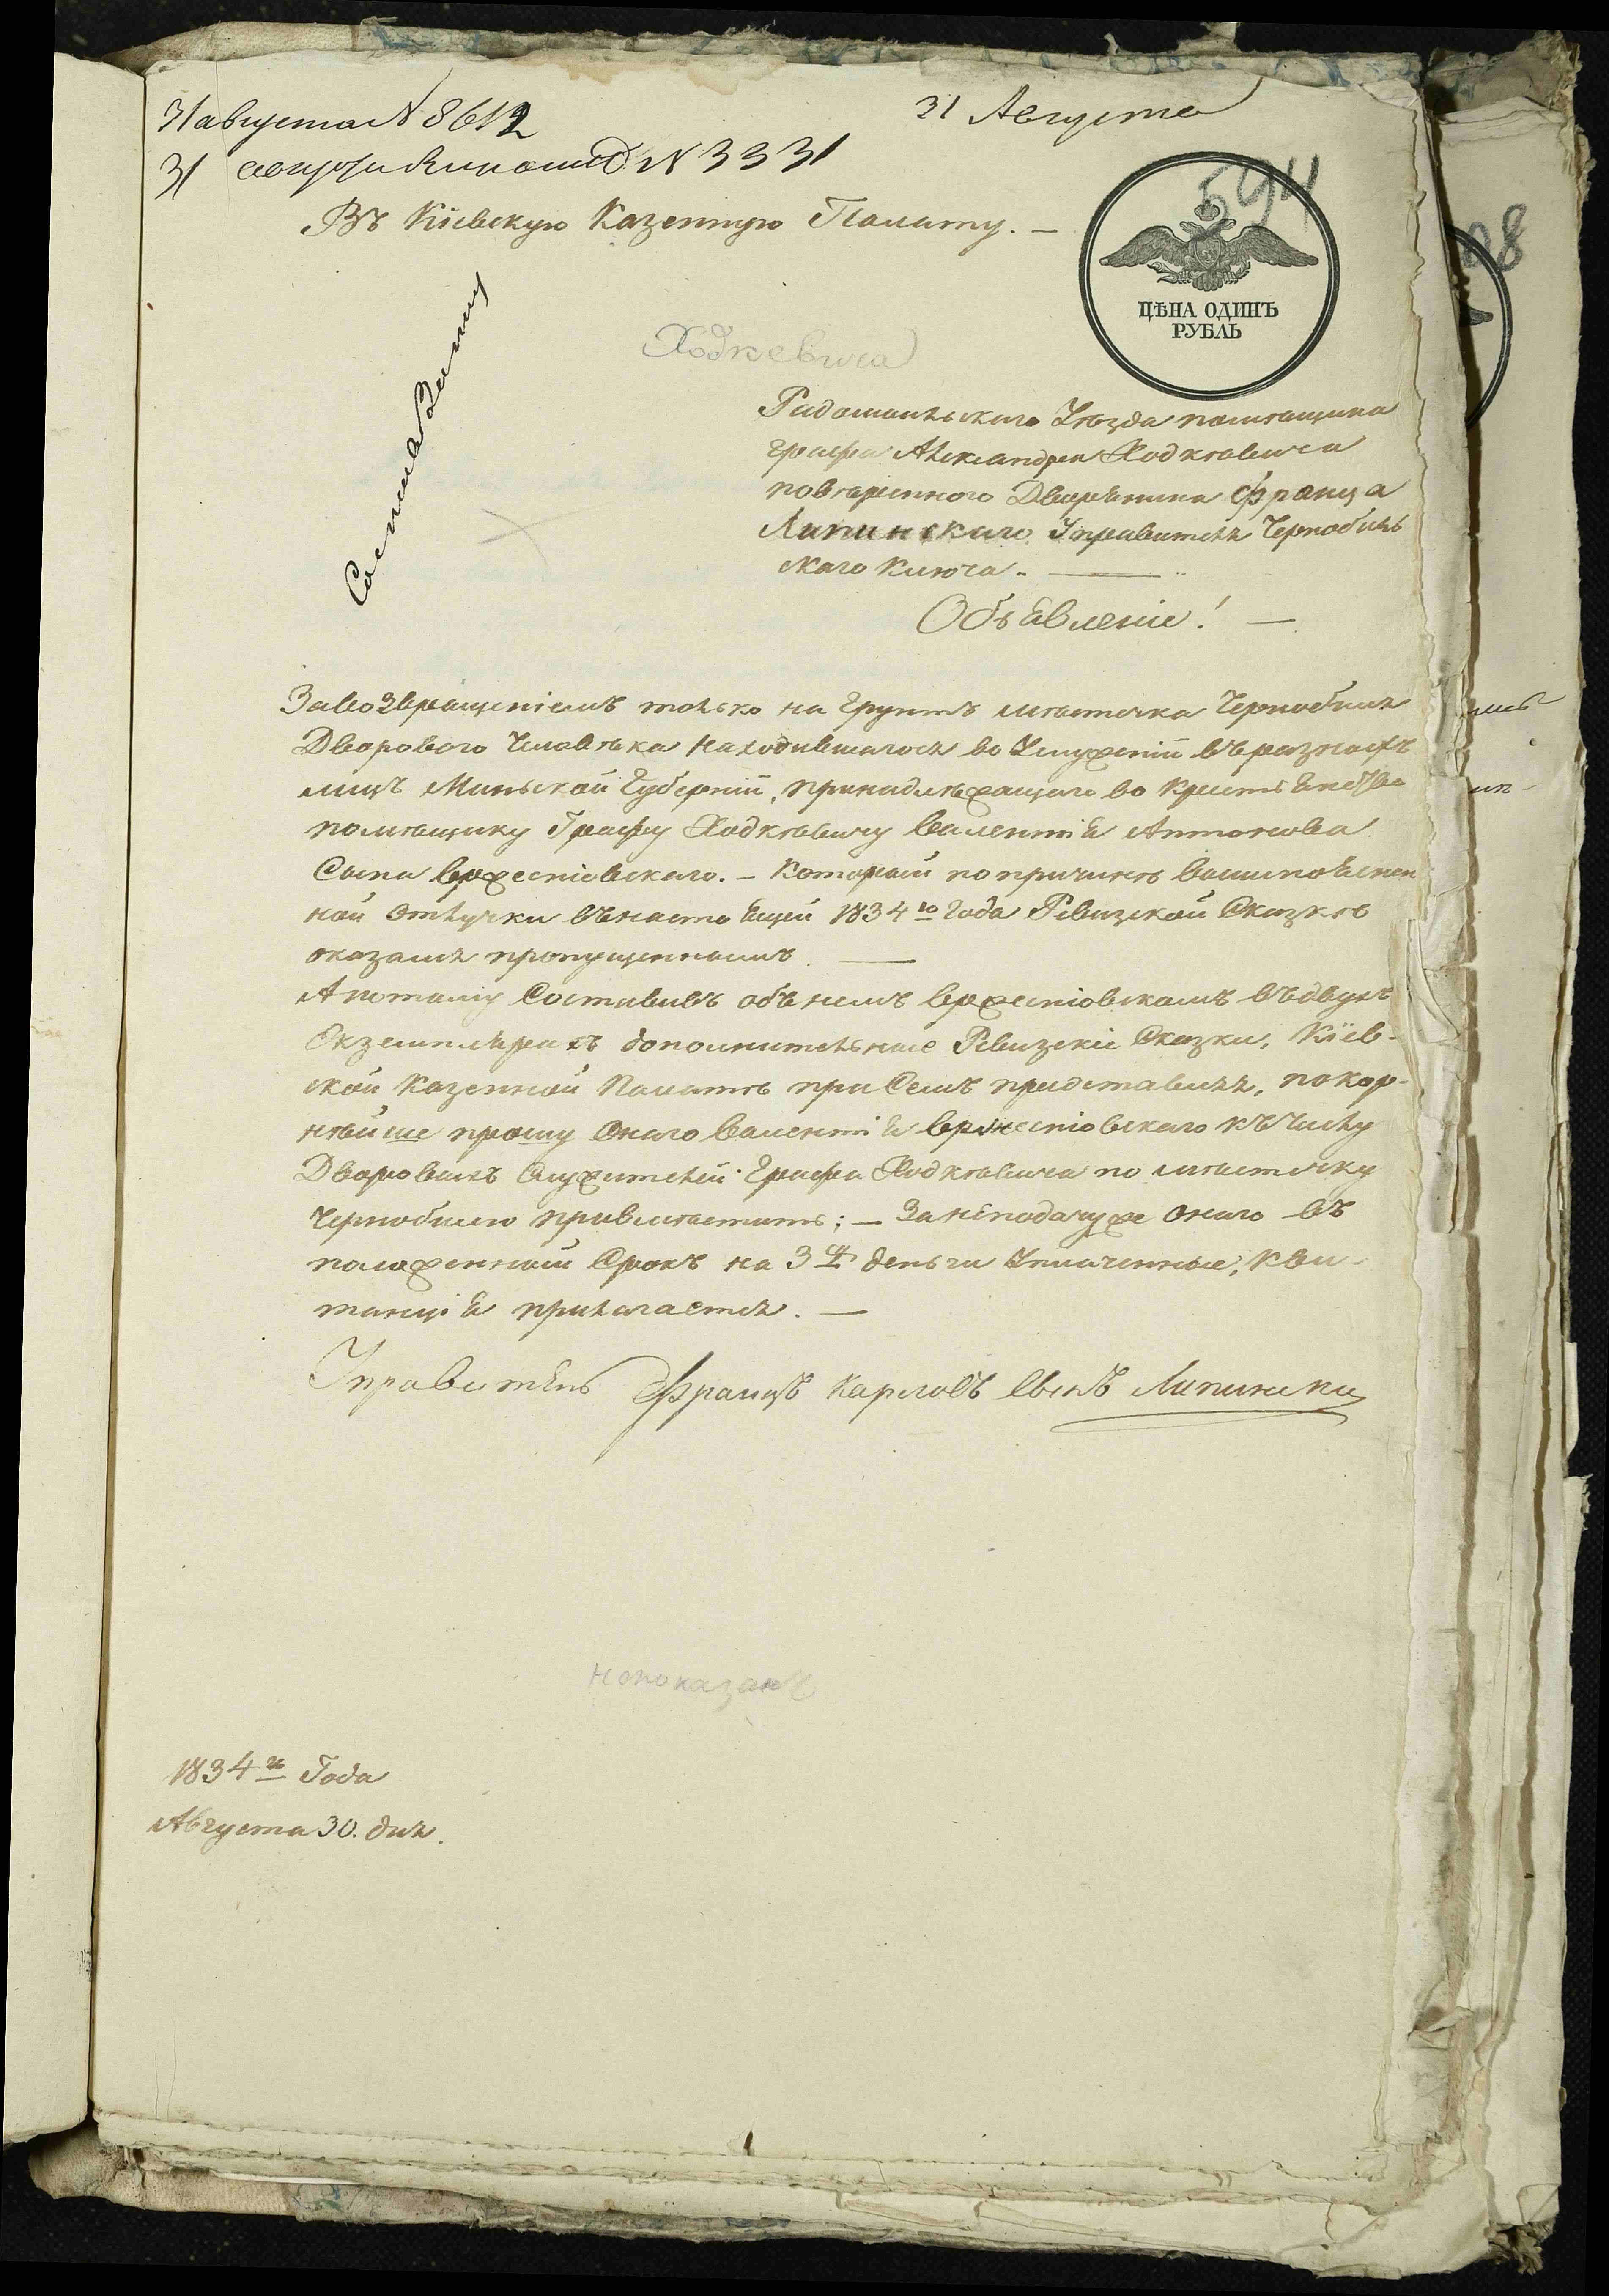 31 августа N 8612
31 Августа
31 августа N 3331
594
Въ Кіевскую Казенную Палату. —
ЦѢНА ОДИНЪ
РУБЛЬ
Ходкевича
Радомысльского Уѣзда помѣщика
графа Александра Ходкѣвича
повѣренного Дворянина Франца
Липинского Управителя Чернобыль
ского Ключа. —
Объявленіе! —
За возвращеніемъ только на грунтъ мѣстечка Чернобыля
Дворового Человѣка находившагося во Услуженіи въ разныхъ
лицъ Миньской Губерніи, принадлѣжащаго во Крестьянство
помѣщику Графу Ходкѣвичу Валентія Антонова
Сына Вржесніовского. – Который по причинѣ вышепояснен
ной Отлучки въ настоящей 1834го Года Ревизской Сказкѣ
оказался пропущеннымъ. —
А потому Составивъ объ немъ Вржесніовскомъ въ двухъ
Екземплярахъ дополнительные Ревизскіе Сказки, Кіев-
ской Казенной Палатѣ при Семъ представляя, покор-
нѣйше прошу Оного Валентія Вржесніовского къ Числу
Дворовыхъ Служителей Графа Ходкѣвича по мѣстечку
Чернобылю привмѣстить; — За неподачу же оного въ
положенный Срокъ на 3й деньги Уплаченные, Кви-
танція прилагается. —
Управитель Францъ Карловъ Сынъ Липински
непоказанъ
1834го Года
Августа 30. дня.